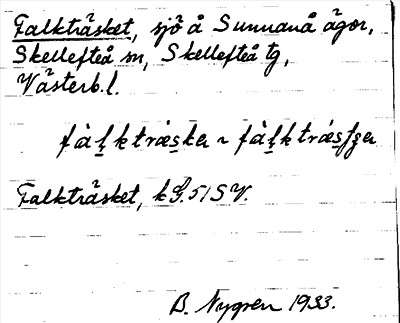 Falkträsket, sjö å Sunnanå ägor,
Skellefteå sn, Skellefteå tg,
Västerb. l.
fàḷktrǿske ~ fàḷktrǿs
Falkträsket, 51 SV.
B. Nygren 1933.